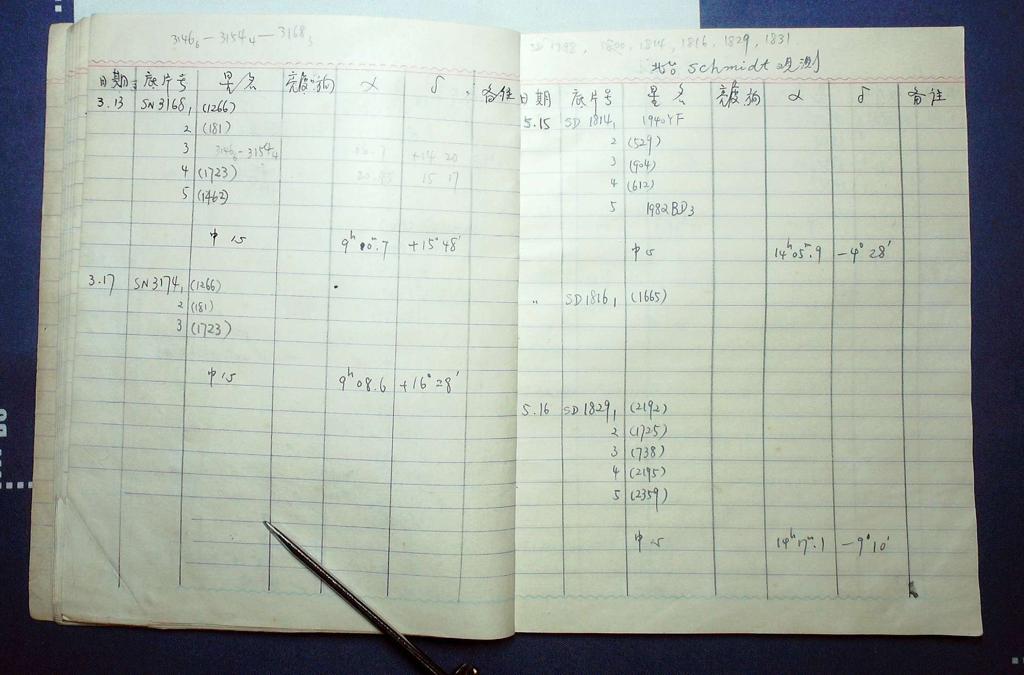 3146₆ — 3154₄ — 3168₃
日期 底片号 星名 亮度 α δ 备注
3.13 SN3168₁ (1266)
2 (181)
3 3146₆-3154₄ +14 20
4 (1723) 15 17
5 (1462)
中心 9ʰ 00ᵐ.7 +15° 48′
3.17 SN3174₁ (1266)
2 (181)
3 (1723)
中心 9ʰ 08.6 +16° 28′
SD 1798, 1800, 1814, 1816, 1829, 1831
北台 Schmidt 观测
日期 底片号 星名 亮度 α δ 备注
5.15 SD 1814₁ 1940YF
2 (529)
3 (904)
4 (612)
5 1982BD₃
中心 14ʰ 05ᵐ.9 -4° 28′
" SD1816₁ (1665)
5.16 SD1829₁ (2192)
2 (1725)
3 (738)
4 (2195)
5 (2359)
中心 14ʰ 17ᵐ.1 -9° 10′